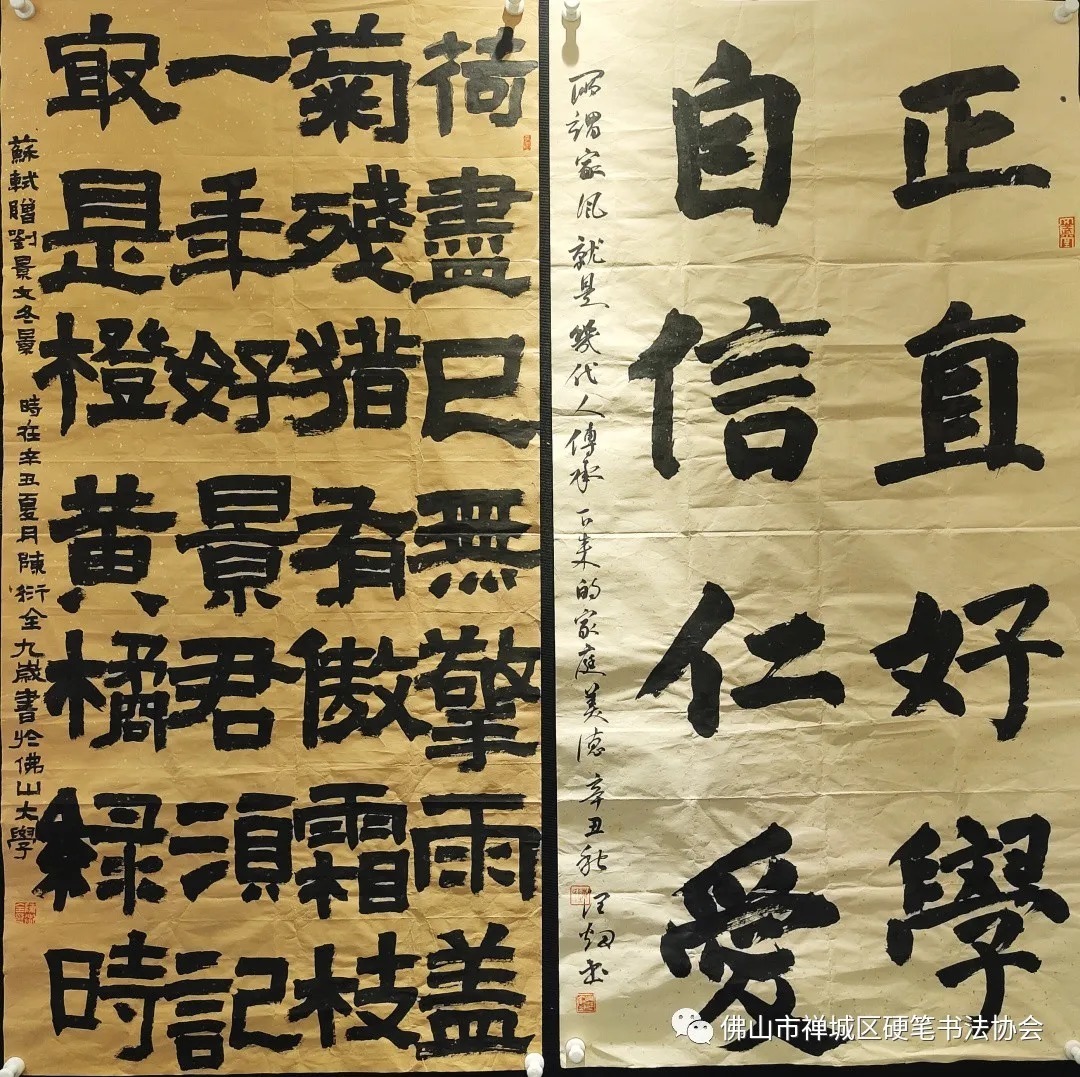 正直好學
自信仁愛
所謂家风就是幾代人傳承下来的家庭美德 辛丑秋
荷盡已無擎雨盖
菊殘猶有傲霜枝
一年好景君須記
冣是橙黄橘緑時
蘇軾贈劉景文冬景 時在辛丑夏月陳衍全九歲書於佛山大學
佛山市禅城区硬笔书法协会